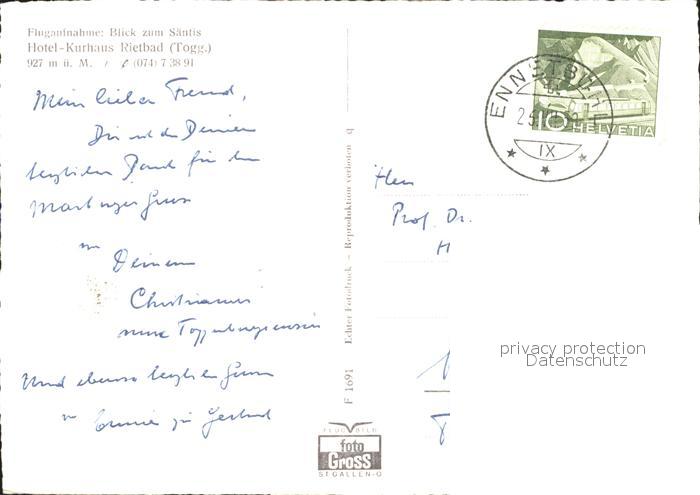 Flugaufnahme: Blick zum Säntis
Hotel-Kurhaus Rietbad (Togg.)
927 m ü. M. / ✆ (074) 7 38 91
Mein lieber Freund,
Dir und den Deinen
herzlichen Dank für den
Marburger Gruss
von
Deinem
Und ebenso herzlichen Gruss
von
F 1691 Echter Fotodruck — Reproduktion verboten q
ENNETBÜHL
IX
10
HELVETIA
Herrn
Prof. Dr.
H
privacy protection
Datenschutz
FLUGBILD
foto
Gross
ST. GALLEN-O